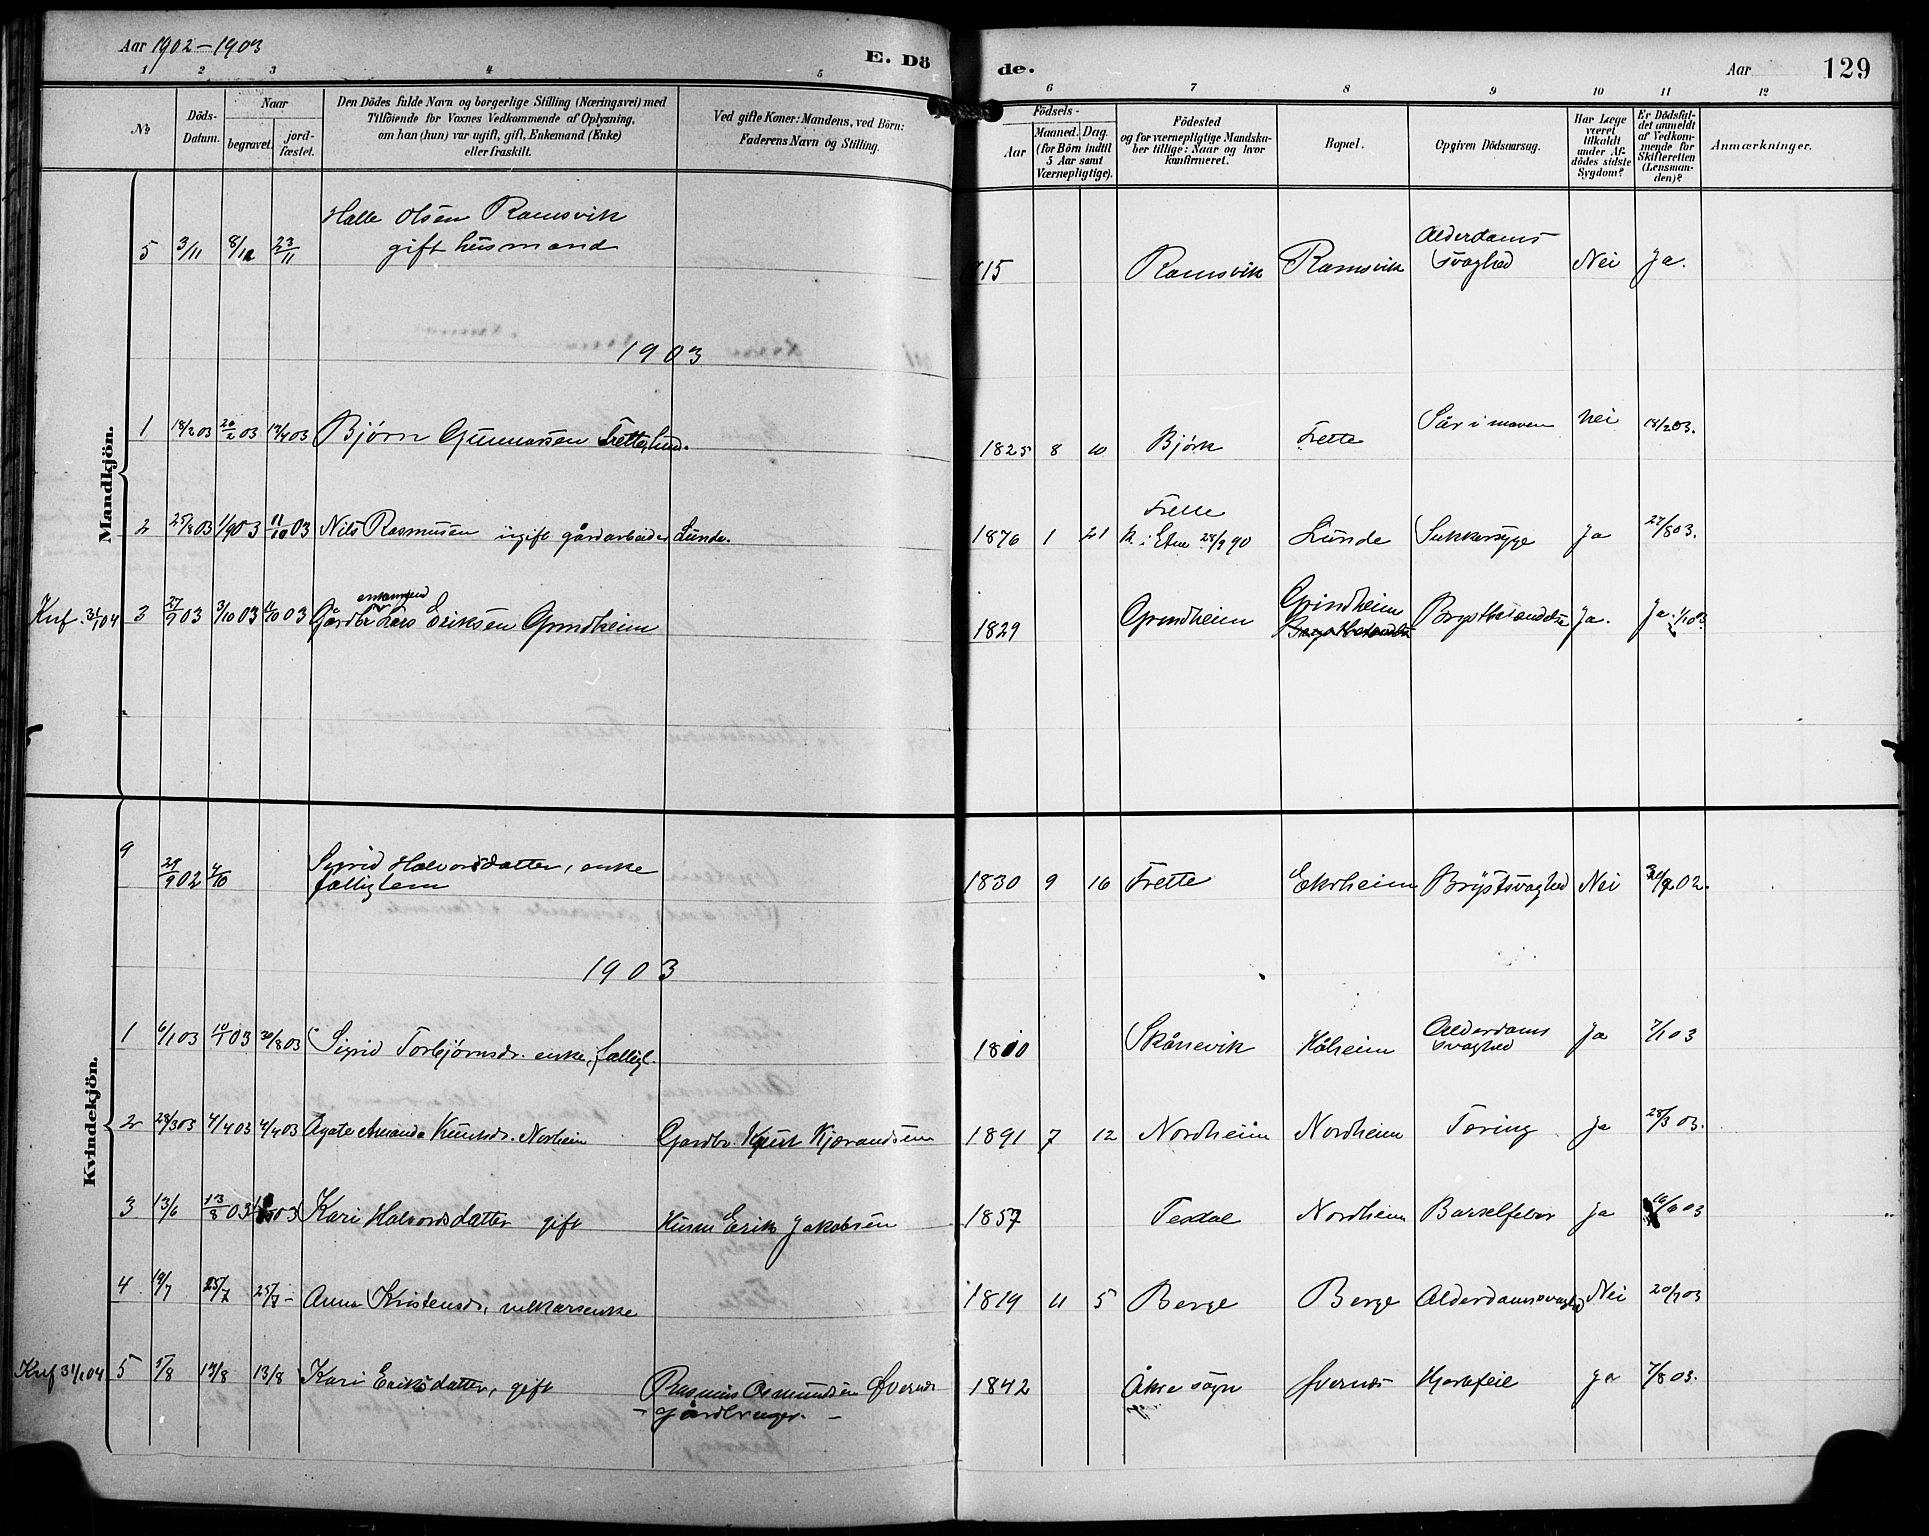 Aar 1902-1903
E. Dö
de.
Aar
129
1 2 3 4 5
6 7 8 9 10 11 12
No
Döds-Datum.
Naar
begravet.
jord-fæstet.
Den Dödes fulde Navn og borgerlige Stilling (Næringsvei) med
Tilföiende for Voxnes Vedkommende af Oplysning,
om han (hun) var ugift, gift, Enkemand (Enke)
eller fraskilt.
Ved gifte Koner: Mandens, ved Börn:
Faderens Navn og Stilling.
Födsels-
Aar
Maaned. Dag.
(for Börn indtil
5 Aar samt
Værnepligtige).
Födested
og for værnepligtige Mandska-
ber tillige: Naar og hvor
konfirmeret.
Bopæl.
Opgiven Dödsaarsag.
Har Læge
været
tilkaldt
under Af-
dödes sidste
Sygdom?
Er Dödsfal-
det anmeldt
af Vedkom-
mende for
Skifteretten
(Lensman-
den)?
Anmærkninger.
Mandkjön.
Halle Olsen Ramsvik
5 3/11 8/12 23/11 gift husmand 15 Ramsvik Ramsvik Alderdoms svaghed Nei Ja.
1903
1 18/2 03 26/2 03 Bjørn Gunnarsen Frette, 1825 8 10 Bjørk Frette Sår i maven Nei 18/2 03.
2 25/8 03 1/9 03 11/10 03 Nils Rasmussen ugift gårdarbeider Lunde. 1876 1 21 Frette k. i Etne 28/9 90 Lunde Sukkersyge Ja 27/8 03.
3 27/9 03 3/10 03 11/10 03 Gårdbr enkemand Lars Eriksen Grindheim 1829 Grindheim Grindheim Ja. Ja.
Kvindekjön.
9 29/9 02 4/10 Sigrid Halvorsdatter, enke
fattiglem 1830 9 16 Frette Ekrheim Brystsvaghed Nei
1903
1 6/1 03 10/1 03 30/8 03 Sigrid Torbjørnsdr. enke, fattigl. 1810 Skånevik Håheim Alderdoms svaghed Ja 7/1 03
2 28/3 03 4/4 03 4/4 03 Agate Amanda Knutsdr. Norheim Gardbr. Knut Kjørandsen 1891 7 12 Nordheim Nordheim Tæring Ja 28/3 03.
3 13/6 13/8 03 Kari Halvorsdatter gift Husm Erik Jakobsen 1857 Texdal Nordheim Barselfeber Ja
4 19/7 25/7 25/7 - Anna Kristensdr, 1819 11 5 Berge Berge Alderdomssvaghed Nei 20/7 03
Knf 31/1 04 5 5/8 13/8 13/8 Kari Eriksdatter, gift Rasmus Osmundsen Øvernes
- gårdbruger. - 1842 Åkre sogn Øvernes Hjertefeil Ja 7/8 03.